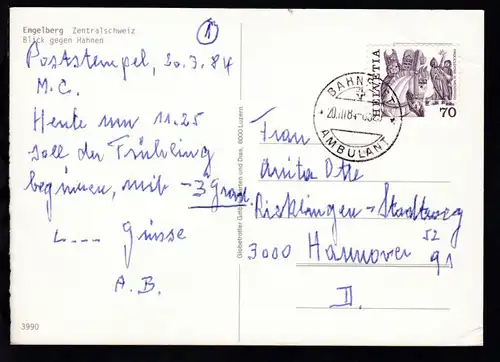 Engelberg Zentralschweiz
Blick gegen Hahnen
1
Poststempel, 20.3.84
M.C.
Heute um 11.25
soll der Frühling
beginnen, mit -3 Grad.
L--- Grüsse
A.B.
3990
HELVETIA
70
BAHNPOST
20.III.84
AMBULANT
Frau
Anita
Ricklingen-Stadtweg
52
3000 Hannover 91
D.